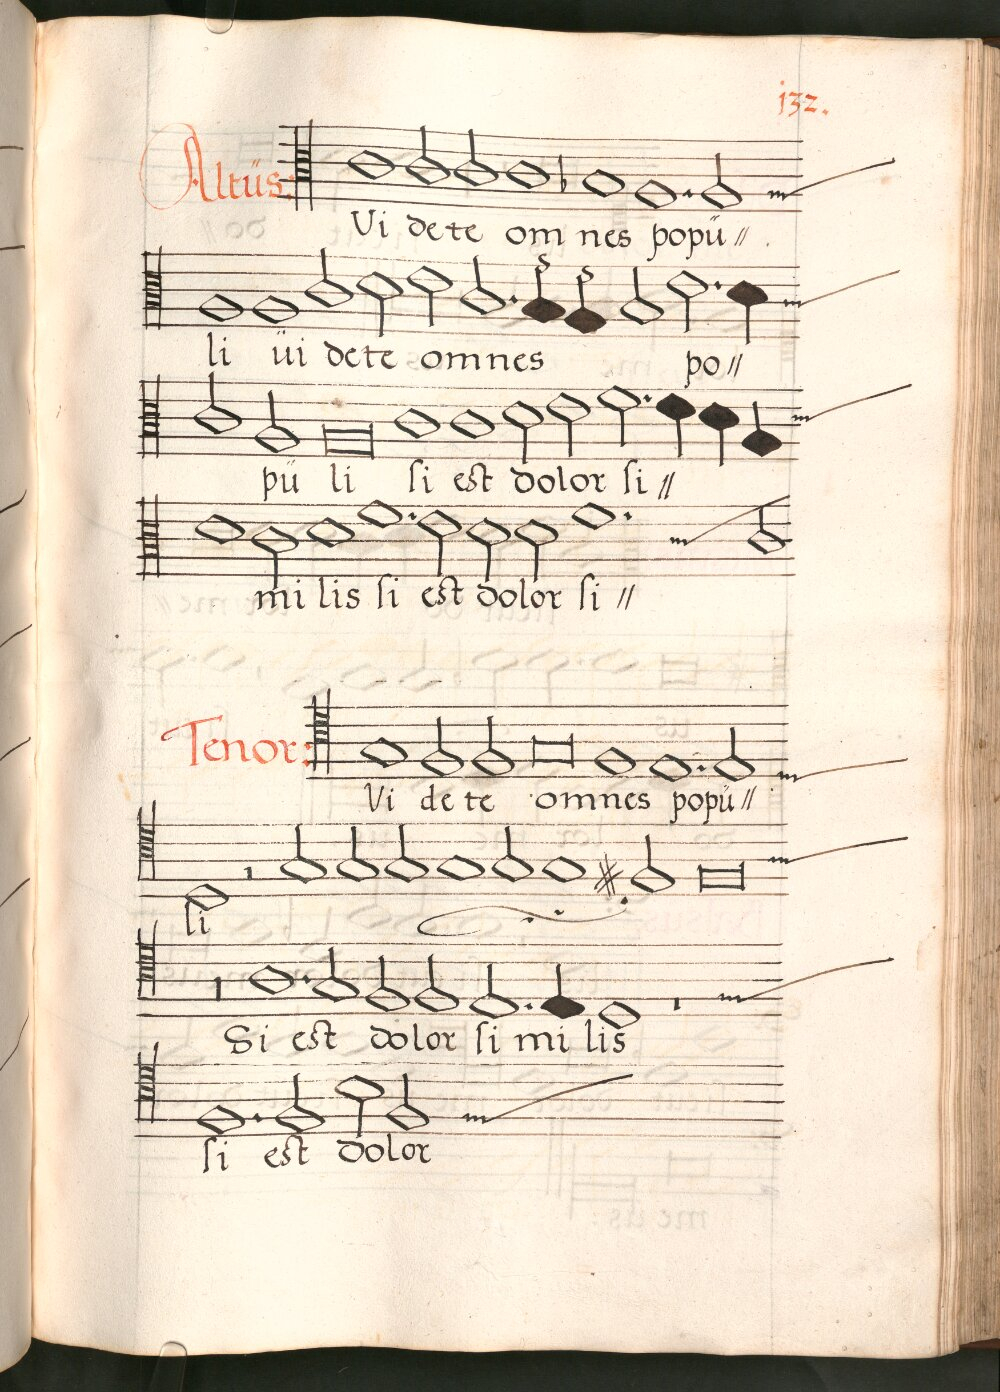 132.
Altüs:
Vi dete om nes popü //
li üi dete omnes po //
pü li si est dolor si //
mi lis si est dolor si //
Tenor:
Vi de te omnes popü //
li
Si est dolor si mi lis
si est dolor